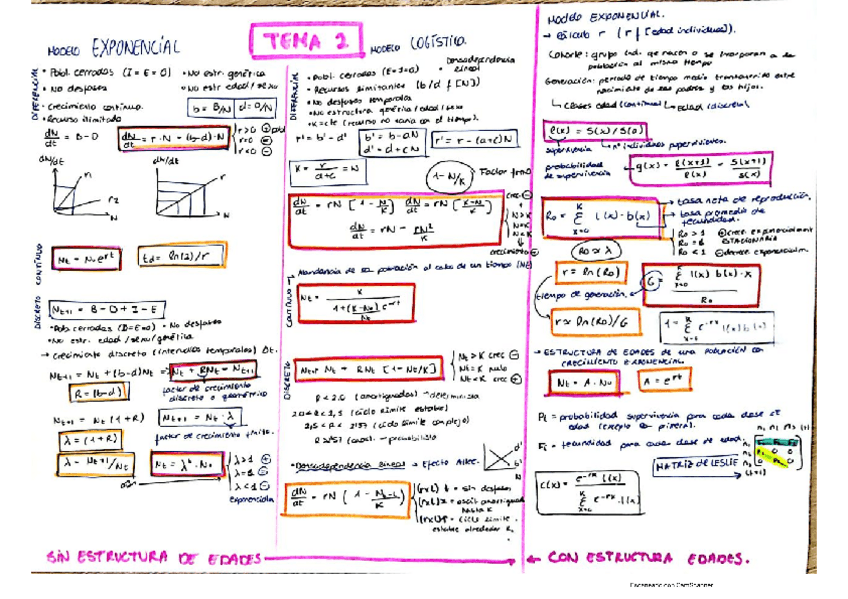 TEMA 2
MODELO EXPONENCIAL
DIFERENCIAL
• Pobl. cerradas (I = E = 0) • No estr. genética
• No desfases • No estr edad/sexo
• Crecimiento continuo.
b = B/N d = D/N
• Recurso ilimitado
dN/dt = B - D
dN/dt = r·N = (b-d)·N
r > 0 ⊕
r = 0
r < 0 ⊖
dN/dt
dN/dt
r2
N
r
N
CONTINUO
Nt = N0 e^rt
td = ln(2)/r
DISCRETO
Nt+1 = B - D + I - E
• Pobl cerradas (I=E=0) • No desfases
• No estr. edad/sexo/genética
→ crecimiento discreto (intervalos temporales) Δt.
Nt+1 = Nt + (b-d)Nt = Nt + RNt = Nt+1
R = (b-d)
factor de crecimiento
discreto o geométrico
Nt+1 = Nt (1+R)
Nt+1 = Nt · λ
λ = (1+R)
factor de crecimiento finito.
λ = Nt+1/Nt
Nt = λ^t · N0
λ > 1 ⊕
λ = 1
λ < 1 ⊖
exponencial
MODELO LOGÍSTICO
Densodependencia
lineal
DIFERENCIAL
• Pobl. cerradas (E=I=0)
• Recursos limitantes (b/d f [N])
• No desfases temporales
• No estructura genética/edad/sexo
• K = cte (recurso no varía con el tiempo).
r' = b' - d'
b' = b-aN
d' = d+cN
r' = r - (a+c)N
K = r/a+c = N
1 - N/K
Factor freno
dN/dt = rN [1 - N/K] dN/dt = rN [K-N/K]
dN/dt = rN - rN²/K
crec
N>K
N=K
N<K
crecimiento ⊕
→ Abundancia de la población al cabo de un tiempo (Nt)
CONTINUO
Nt = K / 1+(K-N0/N0) e^-rt
DISCRETO
Nt+1 = Nt + RNt [1 - Nt/K]
Nt > K crec ⊖
Nt = K nulo
Nt < K crec ⊕
2,0 < R < 2,5 (ciclo límite estable)
2,5 < R < 2,57 (ciclo límite complejo)
d'
b'
N
• Densodependencia lineal → Efecto Allee.
sin desfase
estable alrededor K.
SIN ESTRUCTURA DE EDADES
MODELO EXPONENCIAL.
→ Cálculo r (r f [edad individuos]).
Cohorte: grupo ind. que nacen o se incorporan a la
población al mismo tiempo
Generación: período de tiempo medio transcurrido entre
nacimiento de los padres y los hijos.
↳ Clases edad (continua) ↳ Edad (discreta)
l(x) = S(x)/S(0)
supervivencia ↳ nº individuos supervivientes.
probabilidad
de supervivencia
g(x) = l(x+1)/l(x) = S(x+1)/S(x)
R0 = Σ l(x)·b(x)
tasa neta de reproducción.
tasa promedio de
fecundidad.
R0 > 1 ⊕ crece exponencialment
R0 = 1 ESTACIONARIA
R0 < 1 ⊖ decrece exponencialm.
R0 ≈ λ
r = ln(R0)
G = Σ l(x)·b(x)·x / R0
tiempo de generación.
r ≈ ln(R0)/G
1 = Σ e^-rx l(x) b(x)
→ ESTRUCTURA DE EDADES DE UNA POBLACIÓN CON
CRECIMIENTO EXPONENCIAL.
Nt = A · N0
A = e^rt
Pi = probabilidad supervivencia para cada clase de
edad (excepto la primera).
Fi = fecundidad para cada clase de edad.
MATRIZ DE LESLIE
C(x) = e^-rx l(x) / Σ e^-rx · l(x)
CON ESTRUCTURA EDADES.
Escaneado con CamScanner